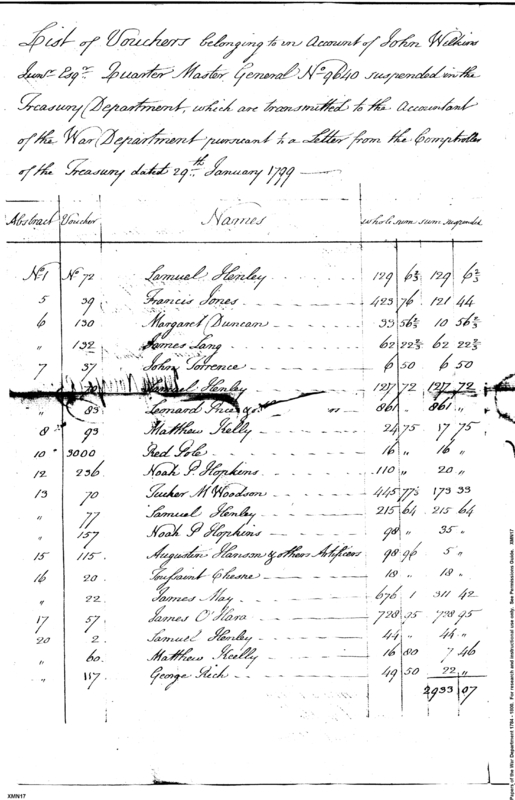 List of Vouchers belonging to an Account of John Wilkins
Junr. Esqr. Quarter Master General No. 9640 suspended in the
Treasury Department, which are transmitted to the Accountant
of the War Department pursuant to a Letter from the Comptroller
of the Treasury dated 29th January 1799
Abstract Voucher Names whole sum sum suspended
No. 1 No. 72 Samuel Henley 129 6 2/3 129 6 2/3
5 39 Francis Jones 423 76 121 44
6 130 Margaret Duncan 33 56 2/3 10 56 2/3
" 132 James Lang 62 22 2/3 62 22 2/3
7 37 John Torrence 6 50 6 50
Samuel Henley 127 72 127 72
" 83 Leonard 861 " 861 "
8 93 Matthew Kelly 24 75 17 75
10 3000 Red Pole 16 " 16 "
12 236 Noah P. Hopkins 110 " 20 "
13 70 Tucker M Woodson 445 77 173 33
" 77 Samuel Henley 215 64 215 64
" 157 Noah P Hopkins 98 " 35 "
15 115 Augustin Hanson & others Artificers 98 96 5 "
16 20 Toussaint Chesne 18 " 18 "
" 22 James May 676 1 311 42
17 57 James O'Hara 728 95 728 95
20 2 Samuel Henley 44 " 44 "
" 60 Matthew Kelly 16 80 7 46
" 117 George Rich 49 50 22 "
2933 07
XMN17
Papers of the War Department 1784 - 1800. For research and instructional use only. See Permissions Guide. XMN17